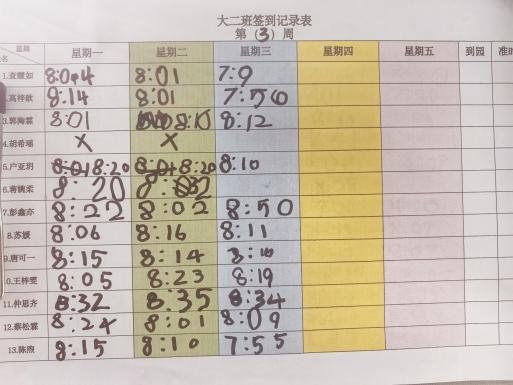 大二班签到记录表
第（3）周
星期 星期一 星期二 星期三 星期四 星期五 到园 准时
名
1.查慧如 8:04 8:01 7:9
高梓歆 8:14 8:01 7:56
3.郭海霖 8:01 8:15 8:12
4.胡希瑶 × ×
5.户亚玥 8:01 8:20 8:01 8:20 8:10
6.蒋婉柔 8:20
7.彭鑫亦 8:22 8:02 8:50
8.苏媛 8:06 8:16 8:11
9.唐可一 8:15 8:14
10.王梓雯 8:05 8:23 8:19
11.仲思齐 8:32 8:35 8:34
12.蔡松霖 8:24 8:01 8:09
13.陈煦 8:15 8:10 7:55